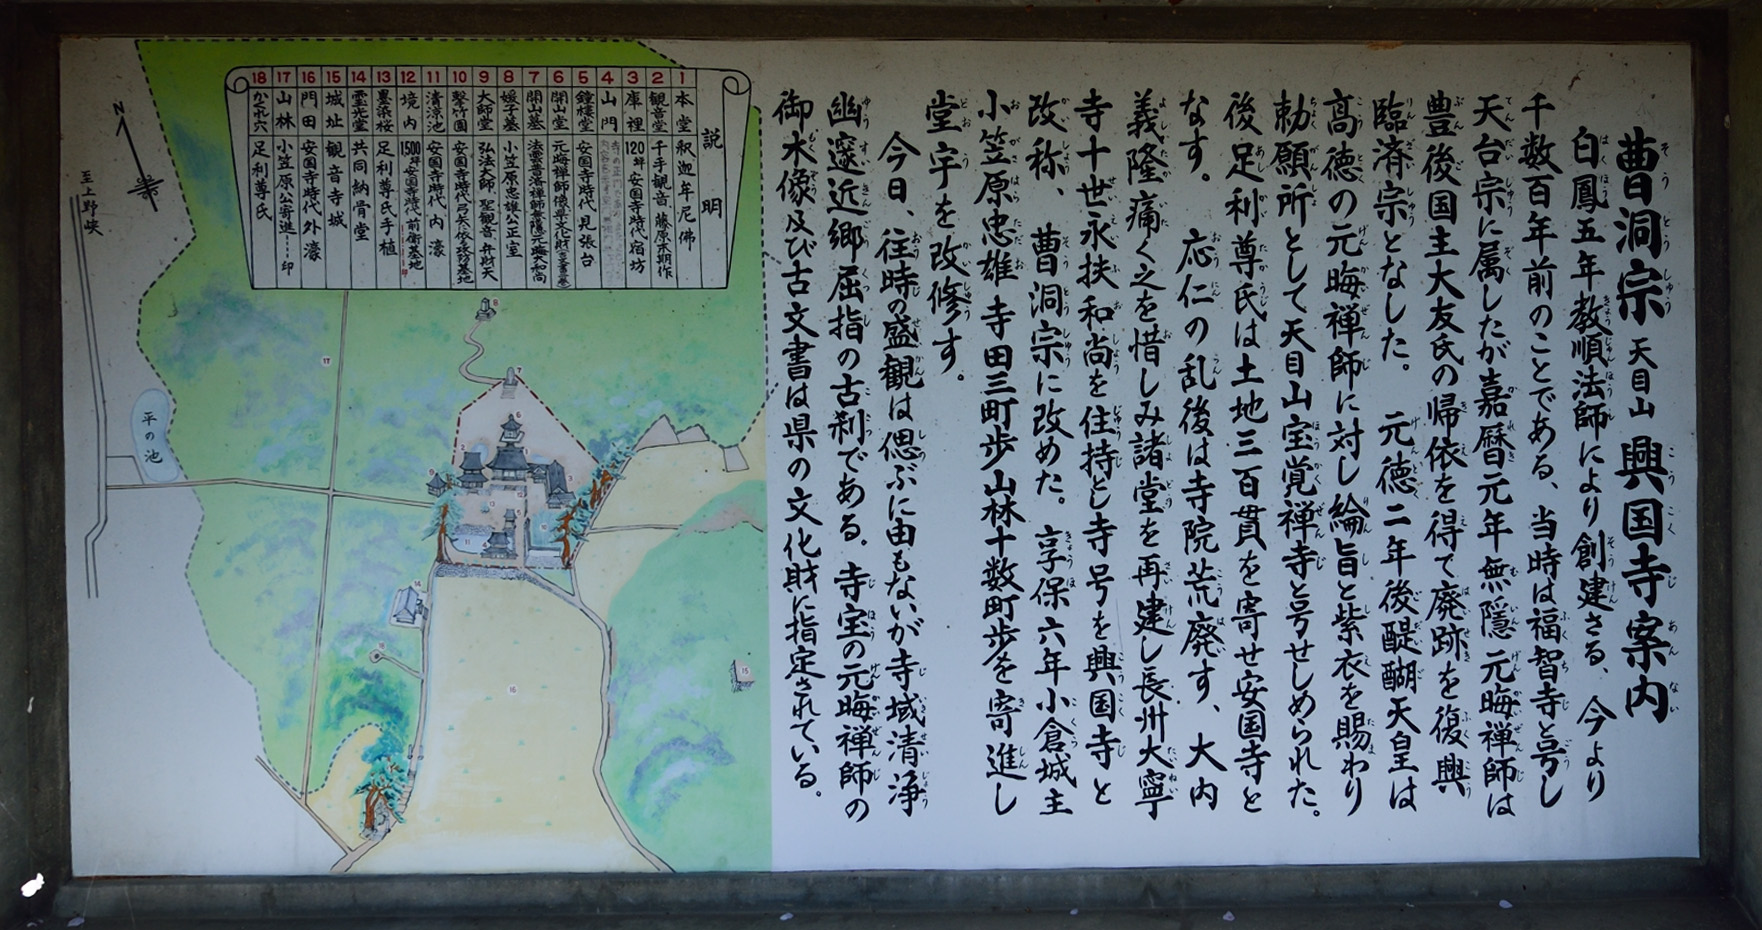 曹洞宗 天目山 興国寺案内
白鳳五年教順法師により創建さる、今より
千数百年前のことである、当時は福智寺と号し
天台宗に属したが嘉暦元年無隠元晦禅師は
豊後国主大友氏の帰依を得て廃跡を復興
臨済宗となした。元徳二年後醍醐天皇は
高徳の元晦禅師に対し綸旨と紫衣を賜わり
勅願所として天目山宝覚禅寺と号せしめられた。
後足利尊氏は土地三百貫を寄せ安国寺と
なす。応仁の乱後は寺院荒廃す、大内
義隆痛く之を惜しみ諸堂を再建し長州大寧
寺十世永扶和尚を住持とし寺号を興国寺と
改称、曹洞宗に改めた。享保六年小倉城主
小笠原忠雄寺田三町歩山林十数町歩を寄進し
堂宇を改修す。
今日、往時の盛観は偲ぶに由もないが寺域清浄
幽邃近郷屈指の古刹である。寺宝の元晦禅師の
御木像及び古文書は県の文化財に指定されている。
説明
1 本堂 釈迦牟尼佛
2 観音堂 千手観音 藤原末期作
3 庫裡 120坪 安国寺時代 宿坊
4 山門
5 鐘楼堂 安国寺時代 見張台
6 開山堂 元晦禅師像
7 開山墓 法雲普済禅師無隠元晦大和尚
8 媛子墓 小笠原忠雄公正室
9 大師堂 弘法大師 聖観音 弁財天
10 安国寺時代
11 清涼池 安国寺時代 内濠
12 境内 1500坪 安国寺時代
13 墨染桜 足利尊氏手植
14 霊光堂 共同納骨堂
15 城址 観音寺城
16 門田 安国寺時代外濠
17 山林 小笠原公寄進 印
18 かくれ穴 足利尊氏
N
至上野峡
平の池
17
8
7
6
14
16
15